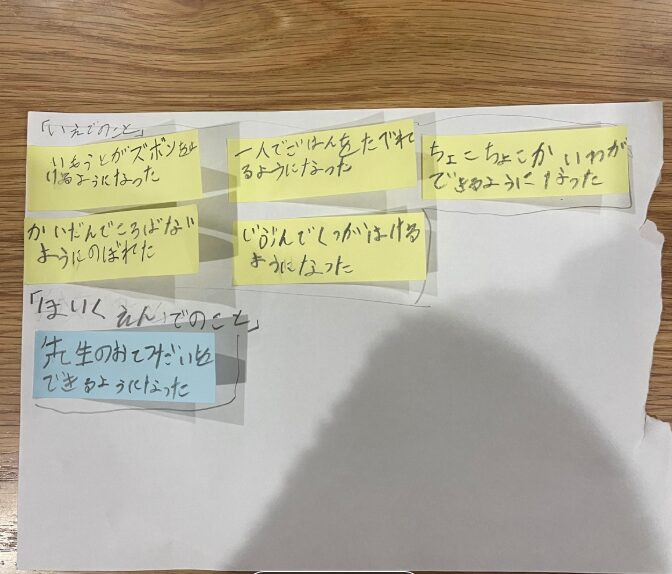 「いえでのこと」
いもうとがズボンをは
けるようになった
一人でごはんをたべれ
るようになった
ちょこちょこかいわが
できるようになった
かいだんでころばな
ようにのばれた
じぶんでくつがはける
ようになった
「ほいくえんでのこと」
先生のおてつだいと
できるようになった